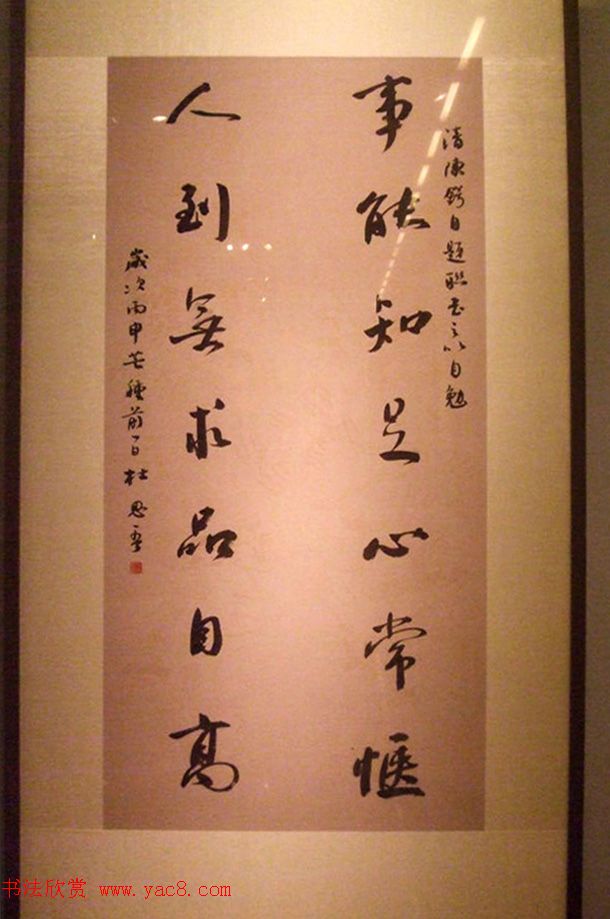 清陈锷自题联书之以自勉
事能知足心常惬
人到无求品自高
岁次丙申芒种前一日杜思高
书法欣赏 www.yac8.com